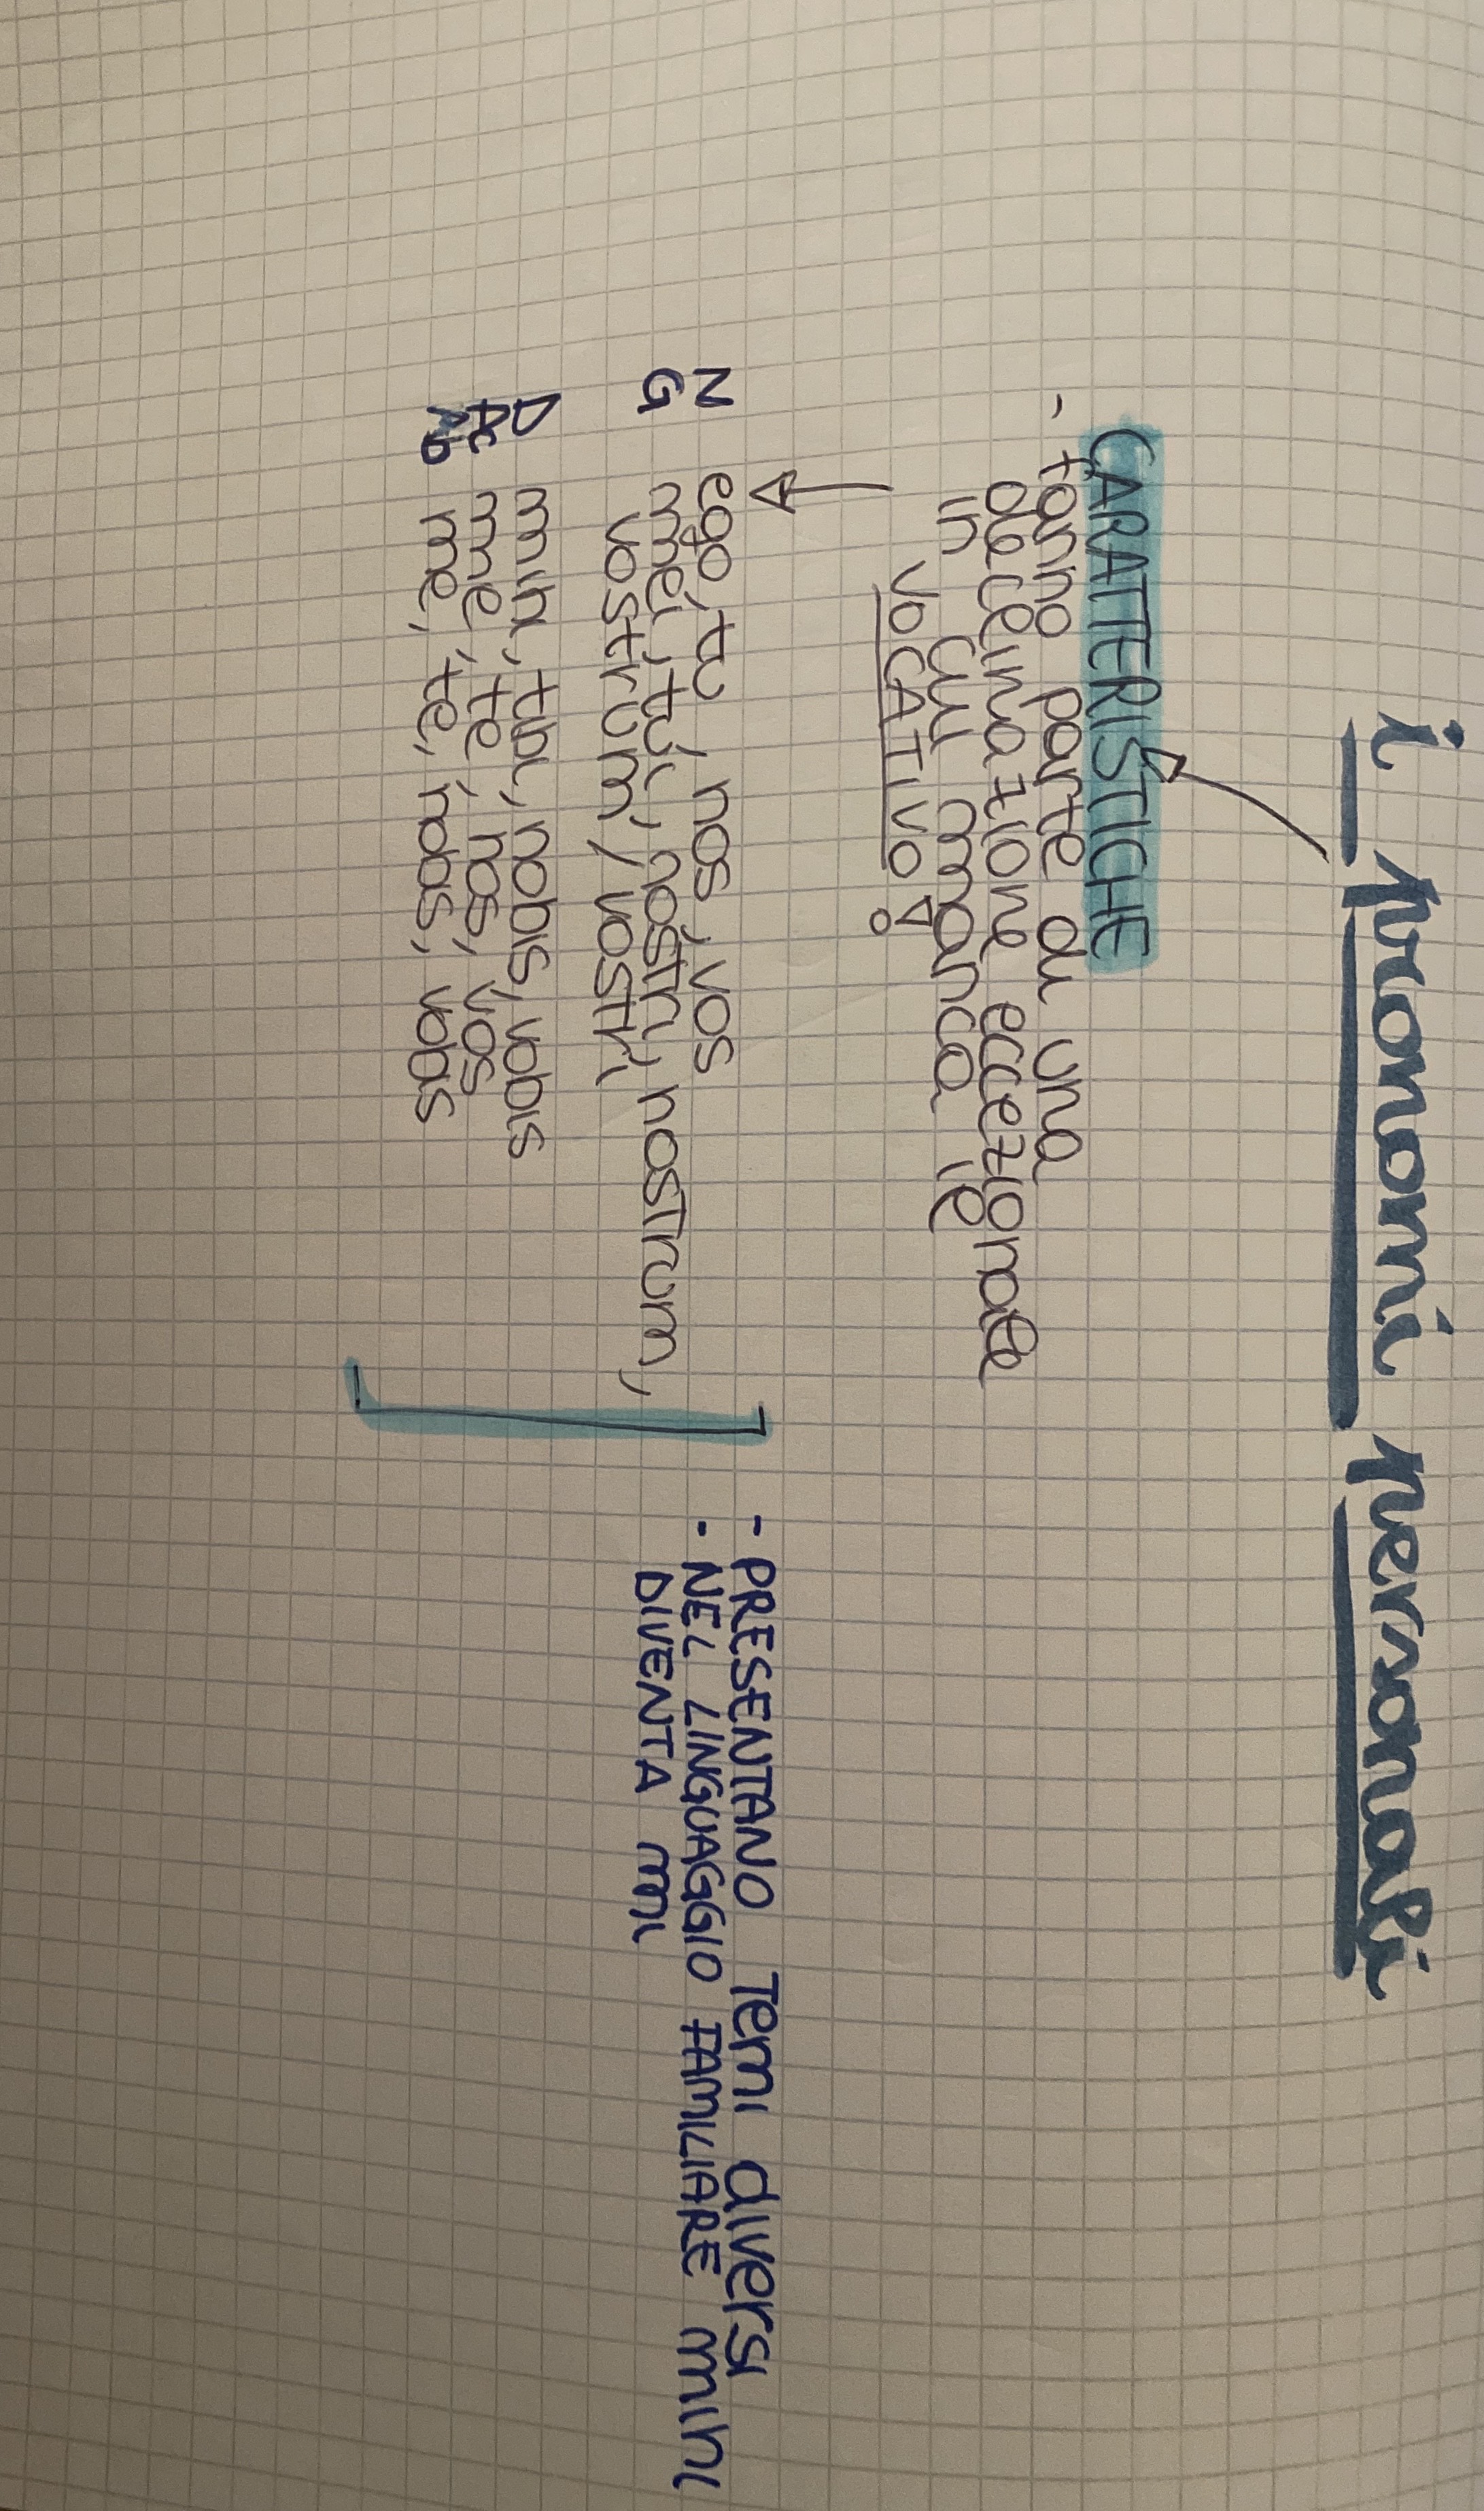 i pronomi personali
CARATTERISTICHE
- fanno parte di una
declinazione eccezionale
in cui manca il
VOCATIVO!
N ego, tu, nos, vos
G mei, tui, nostri, nostrum,
vostrum / vostri
D mihi, tibi, nobis, vobis
Ac me, te, nos, vos
Ab me, te, nobis, vobis
- PRESENTANO Temi diversi
· NEL LINGUAGGIO FAMILIARE mihi
DIVENTA mi